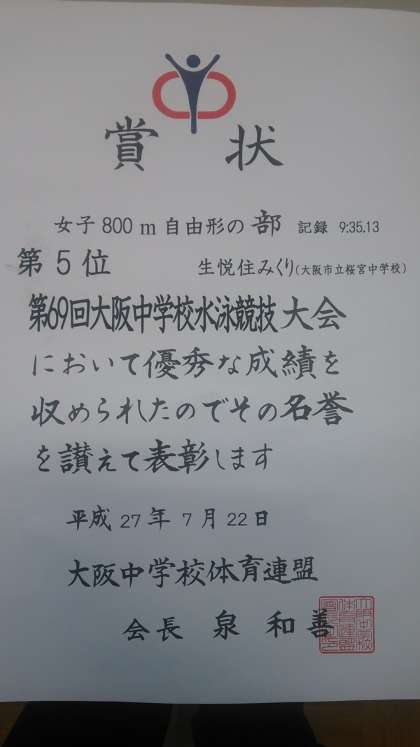 賞状
女子 800 m 自由形の部 記録 9:35.13
第 5 位 生悦住みくり(大阪市立桜宮中学校)
第69回大阪中学校水泳競技大会
において優秀な成績を
収められたのでその名誉
を讃えて表彰します
平成 27 年 7 月 22 日
大阪中学校体育連盟
会長 泉 和 善